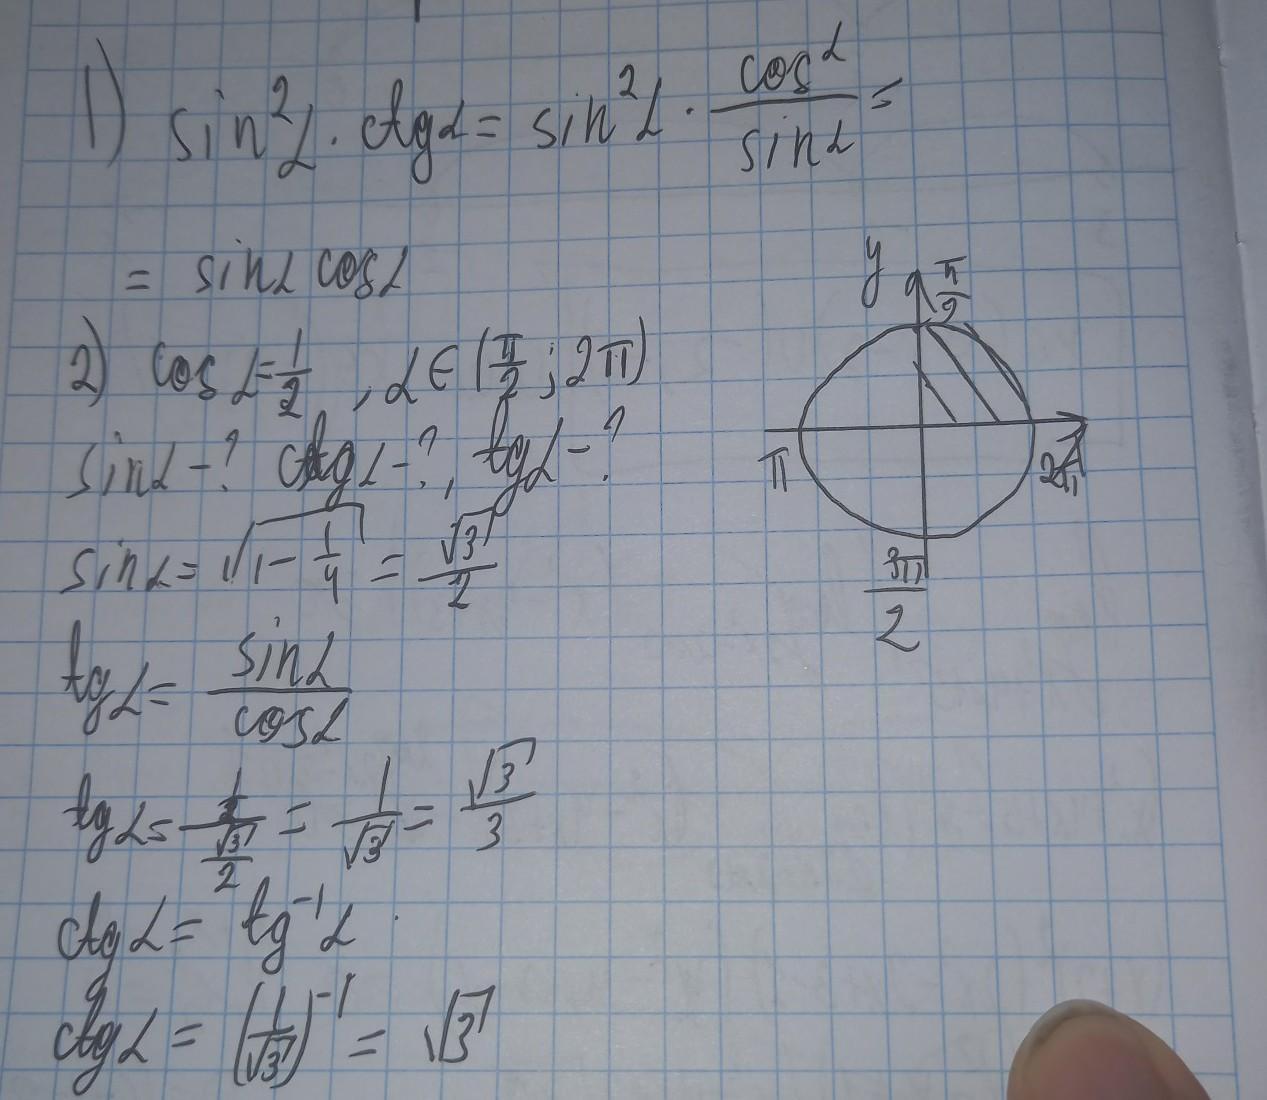 1) sin²α · ctgα = sin²α · cosα/sinα =
= sinα cosα
2) cosα = 1/2, α ∈ (π/2; 2π)
sinα - ? ctgα - ?, tgα - ?
sinα = √(1 - 1/4) = √3/2
tgα = sinα/cosα
tgα = (1/2)/(√3/2) = 1/√3 = √3/3
ctgα = tg⁻¹α
ctgα = (1/√3)⁻¹ = √3
y
π/2
π
2π
3π/2